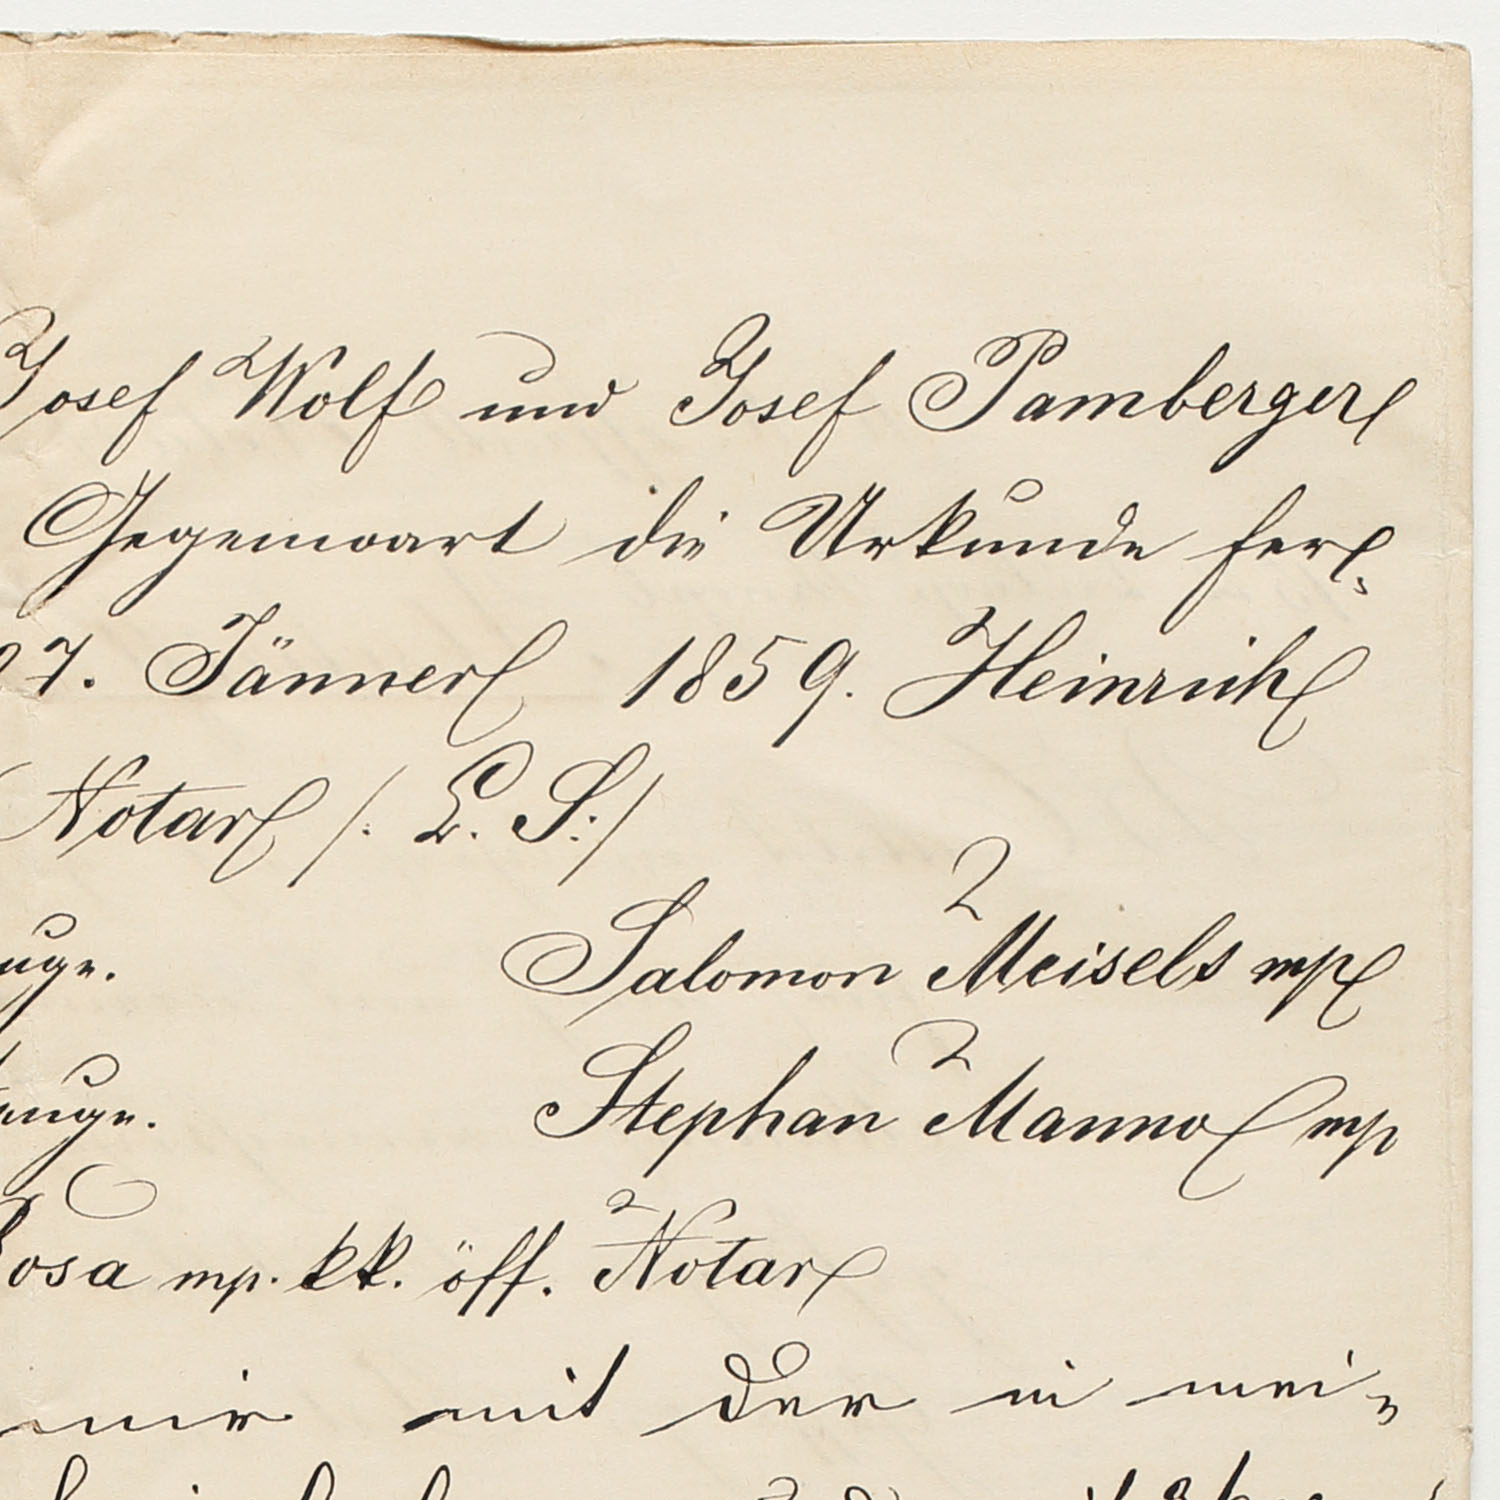 Josef Wolf und Josef Pamberger
Gegenwart die Urkunde fer=
27. Jänner 1859. Heinrich
Notar /: L. S:/
euge. Salomon Meisels mp
euge. Stephan Manno mp
Rosa mp. kk. öff. Notar
mir mit der in mei=